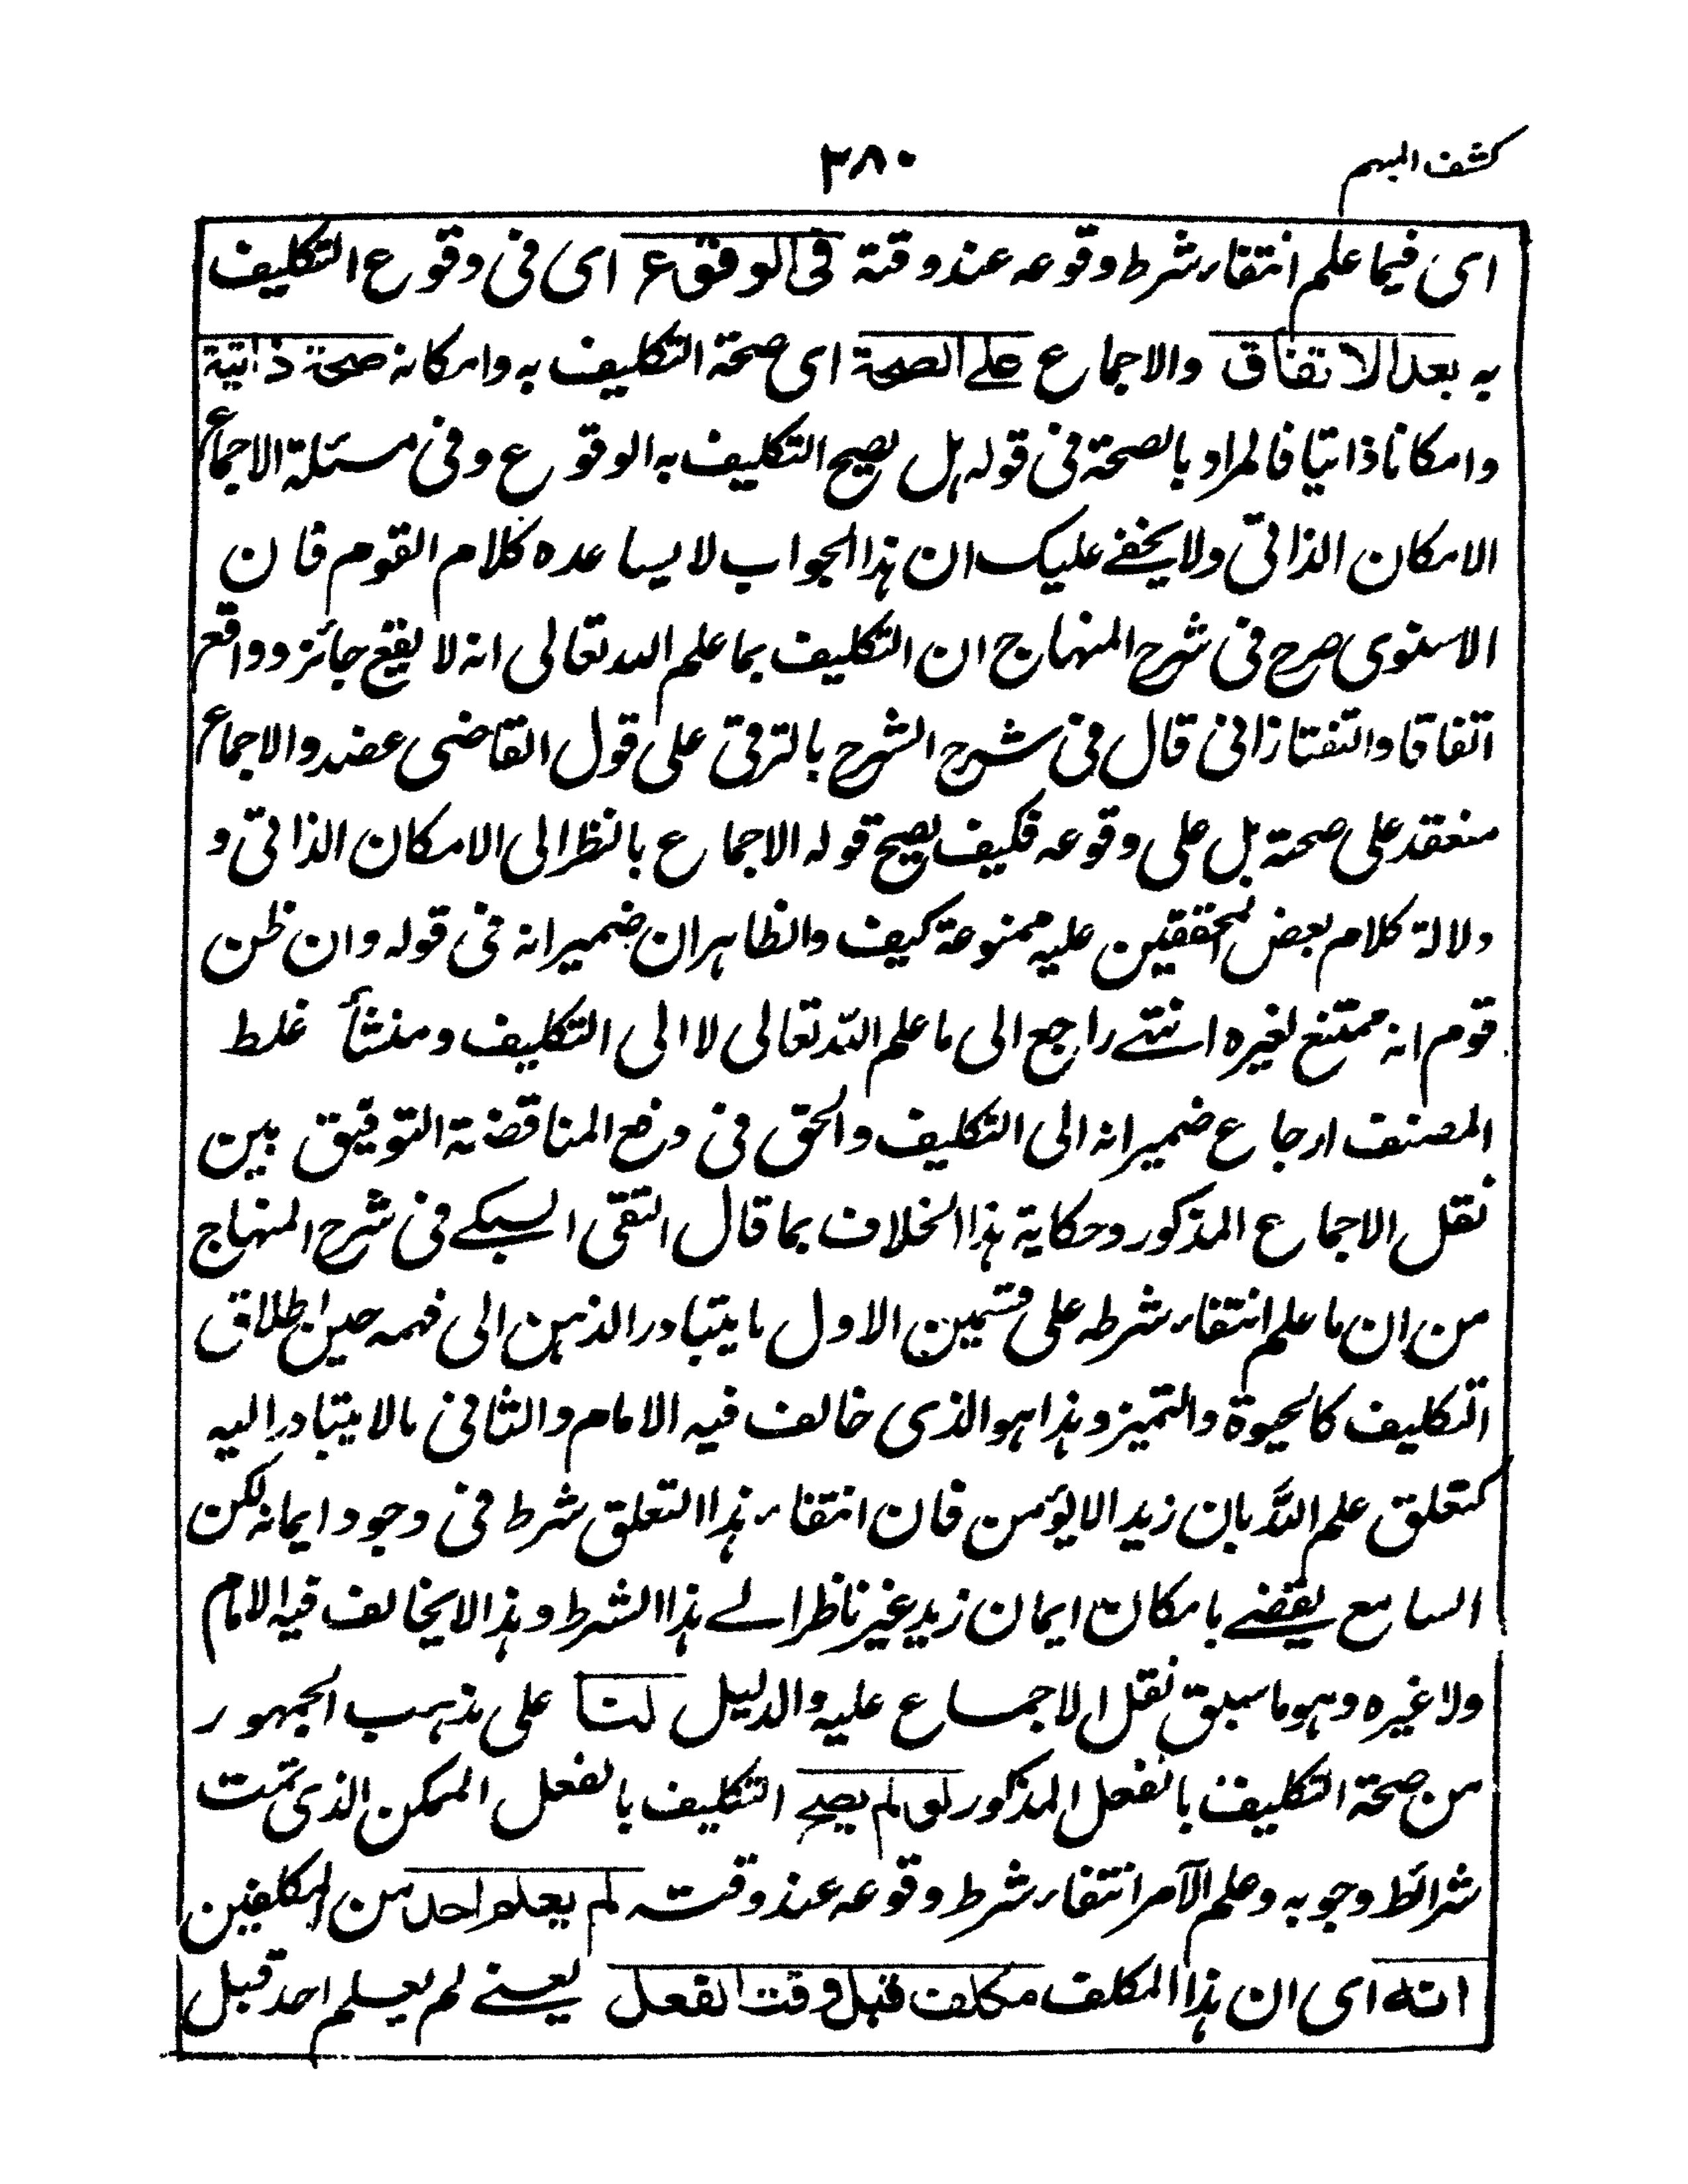 كشف المبهم
٣٨٠
اى فيما علم انتفاء شرط وقوعه عند وقتة فى الوقوع اى فى وقوع التكليف
به بعد الاتفاق والاجماع على الصحة اى صحة التكليف به وامكانه صحة ذاتية
وامكانا ذاتيا فالمراد بالصحة فى قوله هل يصح التكليف به الوقوع وفى مسئلة الاجماع
الامكان الذاتى ولا يخفے عليك ان هذا الجواب لا يساعده كلام القوم فان
الاسنوى صرح فى شرح المنهاج ان التكليف بما علم الله تعالى انه لا يقع جائز وواقع
اتفاقا والتفتازانى قال فى شرح الشرح بالترقى على قول القاضى عضد والاجماع
منعقد على صحته بل على وقوعه فكيف يصح قوله الاجماع بالنظر الى الامكان الذاتى و
دلالة كلام بعض المحققين عليه ممنوعة كيف والظاهر ان ضمير انه فى قوله وان ظن
قوم انه ممتنع لغيره انتهے راجع الى ما علم الله تعالى لا الى التكليف ومنشأ غلط
المصنف ارجاع ضمير انه الى التكليف والحق فى دفع المناقضة التوفيق بين
نقل الاجماع المذكور وحكاية هذا الخلاف بما قال التقى السبكے فى شرح المنهاج
من ان ما علم انتفاء شرطه على قسمين الاول ما يتبادر الذهن الى فهمه حين اطلاق
التكليف كالحيوة والتميز وهذا هو الذى خالف فيه الامام والثانى مالا يتبادر اليه
كتعلق علم الله بان زيدا لا يؤمن فان انتفاء هذا التعلق شرط فى وجود ايمانه لكن
السامع يقضے بامكان ايمان زيد غير ناظر الے هذا الشرط وهذا لا يخالف فيه الامام
ولا غيره وهو ما سبق نقل الاجماع عليه والدليل لنا على مذهب الجمهور
من صحة التكليف بالفعل المذكور لو لم يصح التكليف بالفعل الممكن الذى تمت
شرائط وجوبه وعلم الآمر انتفاء شرط وقوعه عند وقته لم يعلم احد من المكلفين
انه اى ان هذا المكلف مكلف قبل وقت الفعل يعنے لم يعلم احد قبل